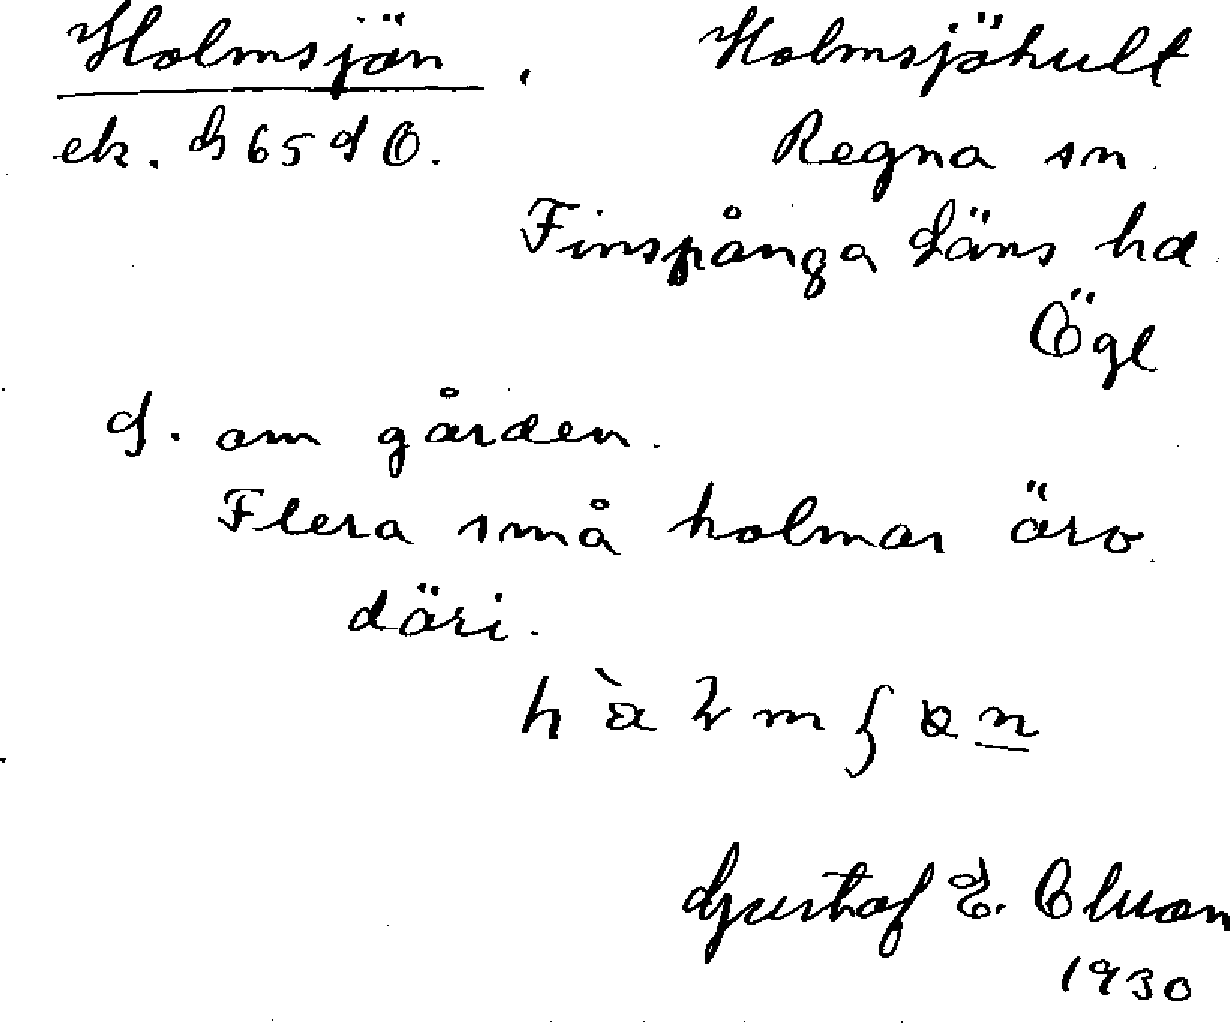 Holmsjön. Holmsjöhult
ek. 65 SO. Regna sn
Finspånga Läns hd
Ögl
S. om gården.
Flera små holmar äro
däri.
Gustaf E. Olsson
1930